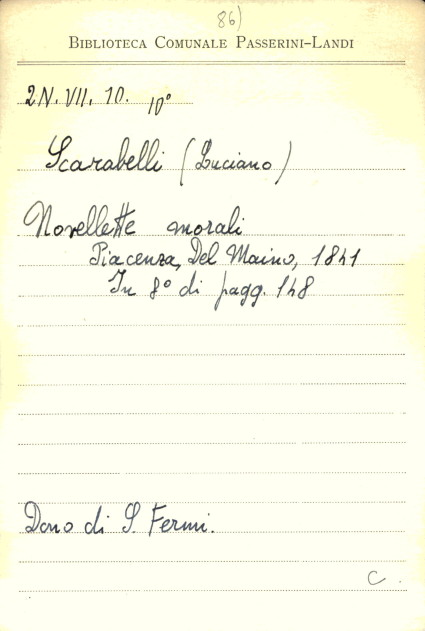 86)
BIBLIOTECA COMUNALE PASSERINI-LANDI
2N. VII. 10. 10°
Scarabelli (Luciano)
Novellette morali
Piacenza, Del Maino, 1841
In 8° di pagg. 148
Dono di S. Fermi.
C.